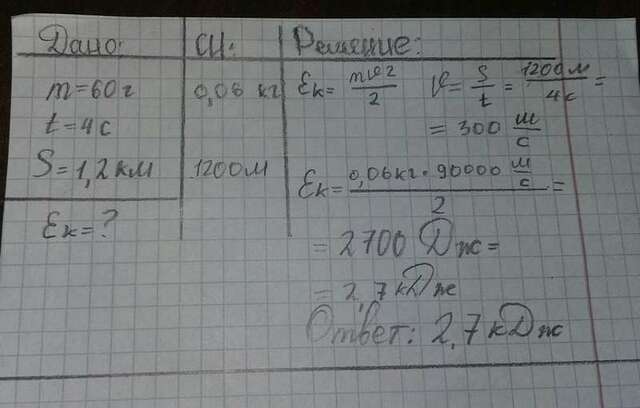 Дано: СИ: Решение:
m=60г 0,06 кг Eк= mυ²/2 υ= S/t = 1200м/4с =
t=4с = 300 м/с
S=1,2км 1200м Eк= 0,06кг·90000 м/с / 2 =
Eк=?
= 2700 Дж =
= 2,7кДж
Ответ: 2,7кДж